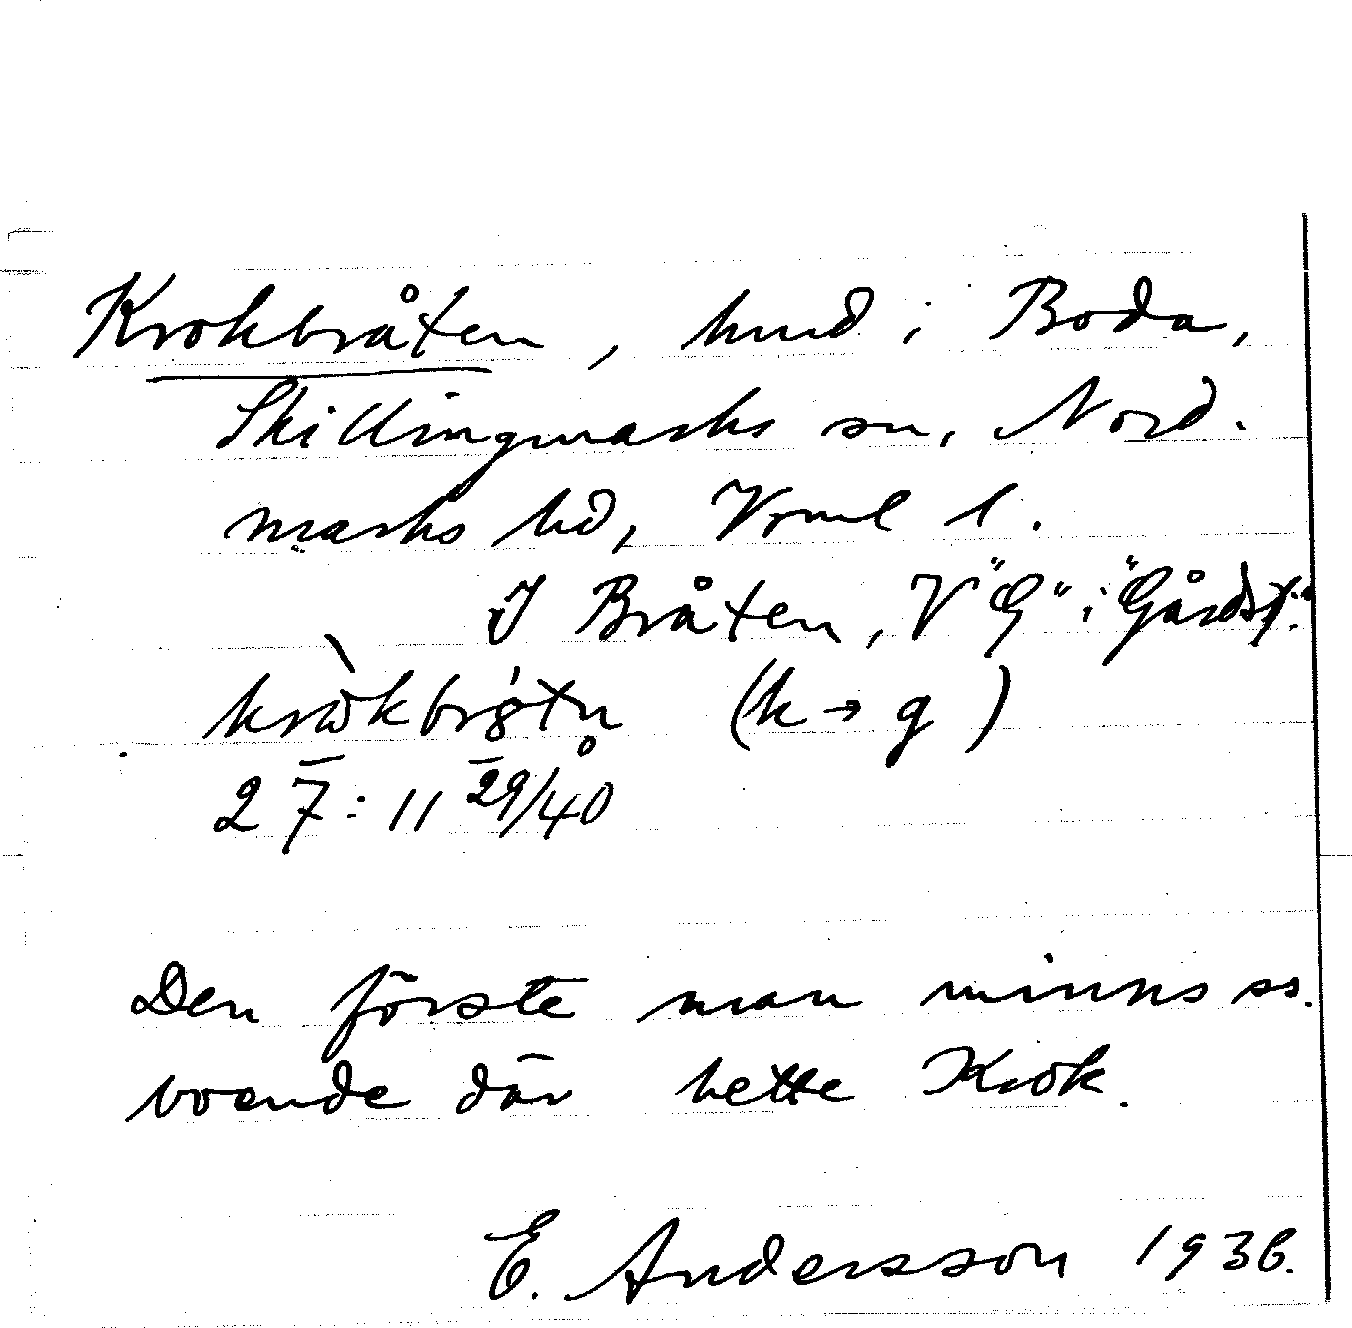 Krokbråten, hmd i Boda,
Skillingmarks sn, Nord-
marks hd, Vrml l.
I Bråten, V "G" i "Gårdsf."
(k → g)
27:11 29/40
Den förste man minns ss.
boende där hette Krok.
E. Andersson 1936.